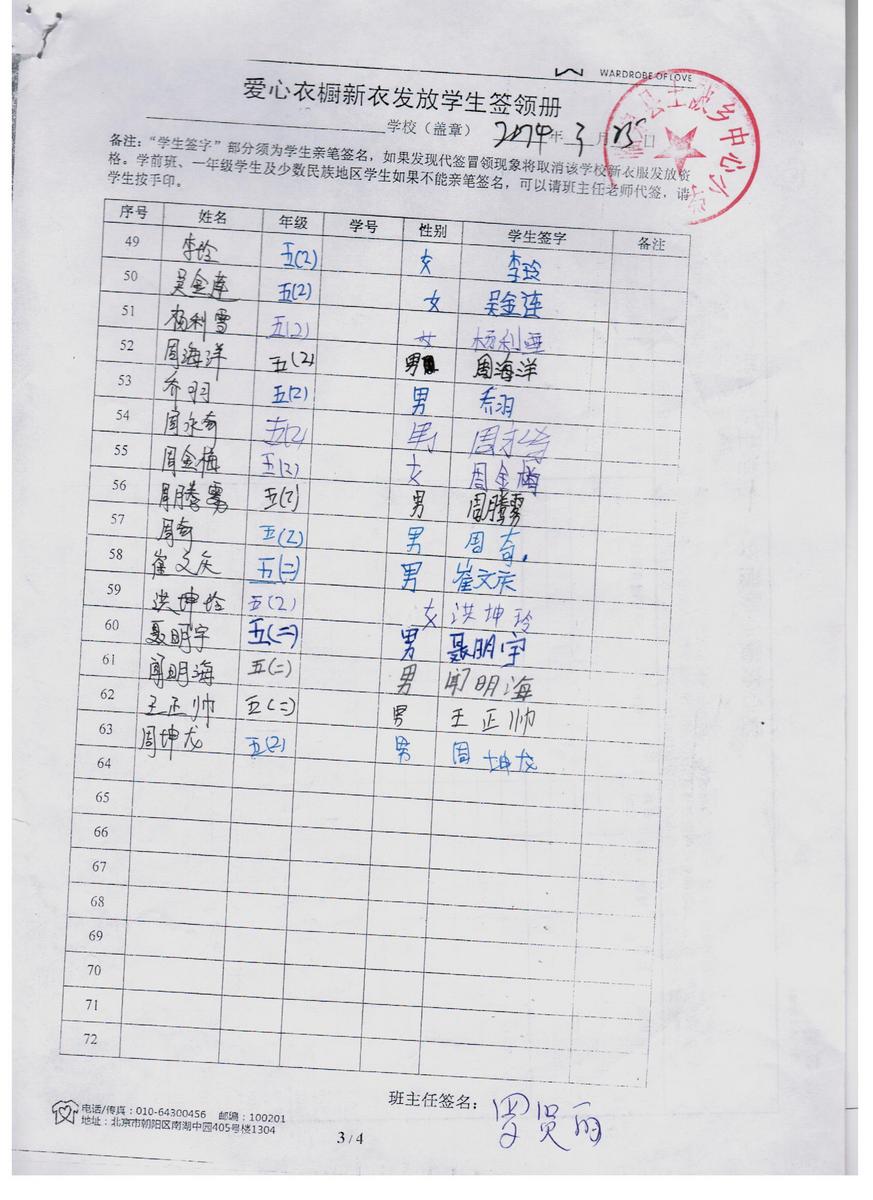 WARDROBE OF LOVE
爱心衣橱新衣发放学生签领册
学校（盖章） 2014年 3 月 25 日
县土 乡中心小学
备注：“学生签字”部分须为学生亲笔签名，如果发现代签冒领现象将取消该学校新衣服发放资
格。学前班、一年级学生及少数民族地区学生如果不能亲笔签名，可以请班主任老师代签，请
学生按手印。
序号 姓名 年级 学号 性别 学生签字 备注
49 李玲 五(2) 女 李玲
50 吴金莲 五(2) 女 吴金莲
51 杨利雪 五(2) 女 杨利雪
52 周海洋 五(2) 男 周海洋
53 乔羽 五(2) 男 乔羽
54 周永奇 五(2) 男 周永奇
55 周金梅 五(2) 女 周金梅
56 周腾雾 五(2) 男 周腾雾
57 周奇 五(2) 男 周奇
58 崔文庆 五(二) 男 崔文庆
59 洪坤玲 五(2) 女 洪坤玲
60 聂明宇 五(二) 男 聂明宇
61 闻明海 五(二) 男 闻明海
62 王正帅 五(二) 男 王正帅
63 周坤龙 五(2) 男 周坤龙
64
65
66
67
68
69
70
71
72
班主任签名： 罗贤丽
电话/传真：010-64300456 邮编：100201
地址：北京市朝阳区南湖中园405号楼1304
3 / 4